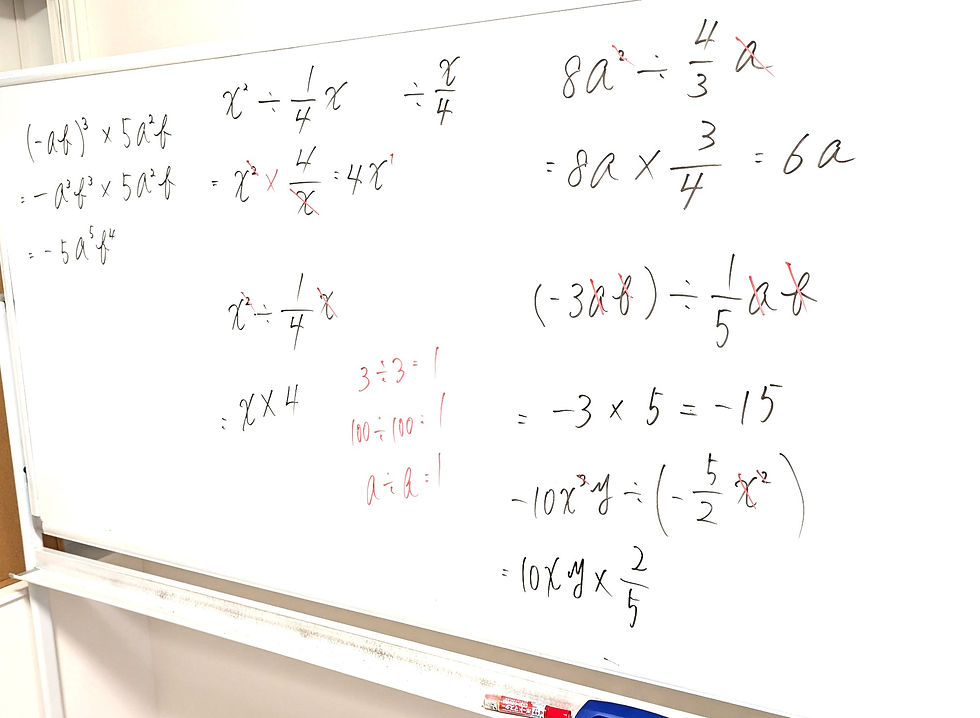 (-ab)³ × 5a²b
= -a³b³ × 5a²b
= -5a⁵b⁴
x² ÷ 1/4 x ÷ x/4
= x² × 4/x = 4x¹
x² ÷ 1/4 x
= x × 4
3 ÷ 3 = 1
100 ÷ 100 = 1
a ÷ a = 1
8a² ÷ 4/3 a
= 8a × 3/4 = 6a
(-3ab) ÷ 1/5 ab
= -3 × 5 = -15
-10x³y ÷ (-5/2 x²)
= 10xy × 2/5